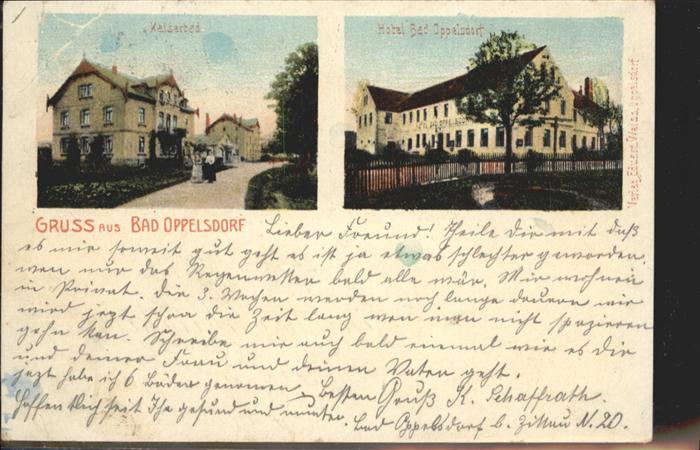 Kaiserbad
Hotel Bad Oppelsdorf
Verlag Eduard Oppelsdorf
GRUSS AUS BAD OPPELSDORF
Lieber Freund! Theile Dir mit daß
es mir soweit gut geht es ist ja etwas schlechter geworden.
wen nur das Regenwetter bald alle wär. Mir wohnen
in Privat. die 3. Wochen werden noch lange dauern mir
wird jezt schon die Zeit lang wen man nicht spazieren
gehn kan. Schreibe mir auch bald einmal wie es dir
und deiner Frau und deinen Vater geht.
jezt habe ich 6 Bäder genomen
besten Gruß K. Schaffrath.
Hoffentlich seit Ihr gesund und munter.
Bad Oppelsdorf b. Zittau N. 20.